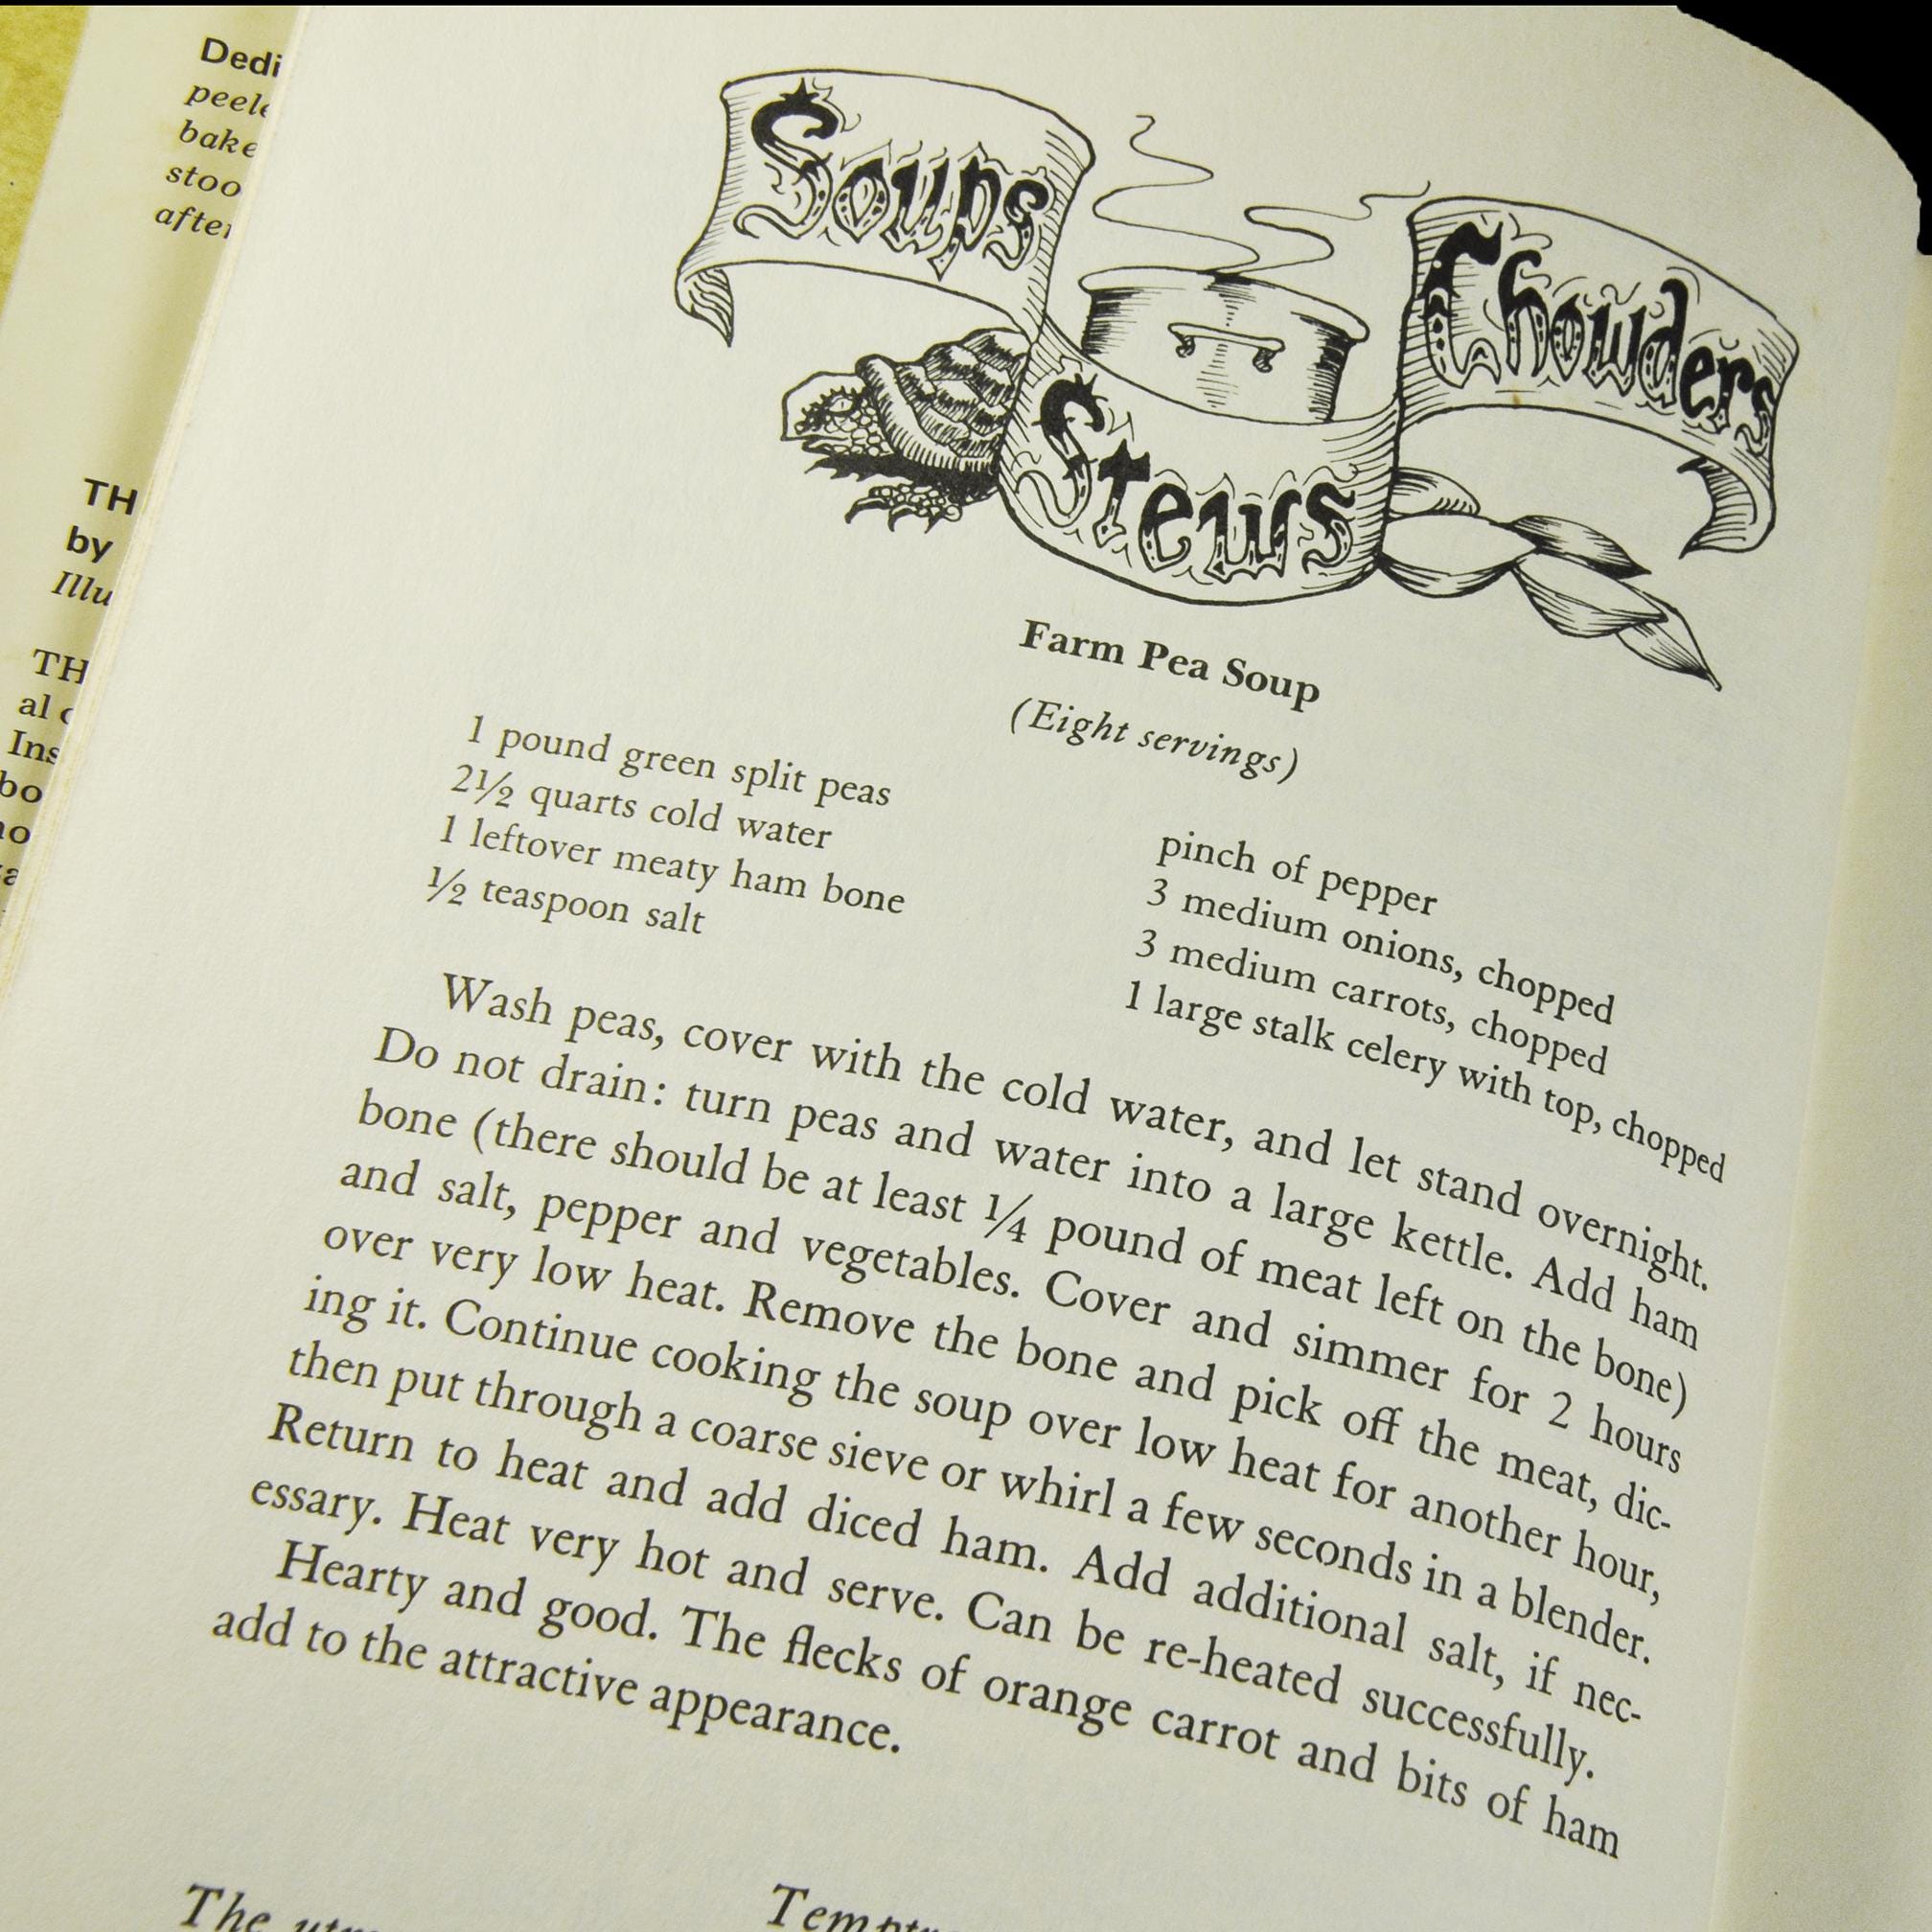 Dedi
peele
bake
stoo
after
TH
by
Illu
TH
al
Ins
bo
Soups
Stews
Chowders
Farm Pea Soup
(Eight servings)
1 pound green split peas
2½ quarts cold water
1 leftover meaty ham bone
½ teaspoon salt
pinch of pepper
3 medium onions, chopped
3 medium carrots, chopped
1 large stalk celery with top, chopped
Wash peas, cover with the cold water, and let stand overnight.
Do not drain: turn peas and water into a large kettle. Add ham
bone (there should be at least ¼ pound of meat left on the bone)
and salt, pepper and vegetables. Cover and simmer for 2 hours
over very low heat. Remove the bone and pick off the meat, dic-
ing it. Continue cooking the soup over low heat for another hour,
then put through a coarse sieve or whirl a few seconds in a blender.
Return to heat and add diced ham. Add additional salt, if nec-
essary. Heat very hot and serve. Can be re-heated successfully.
Hearty and good. The flecks of orange carrot and bits of ham
add to the attractive appearance.
The